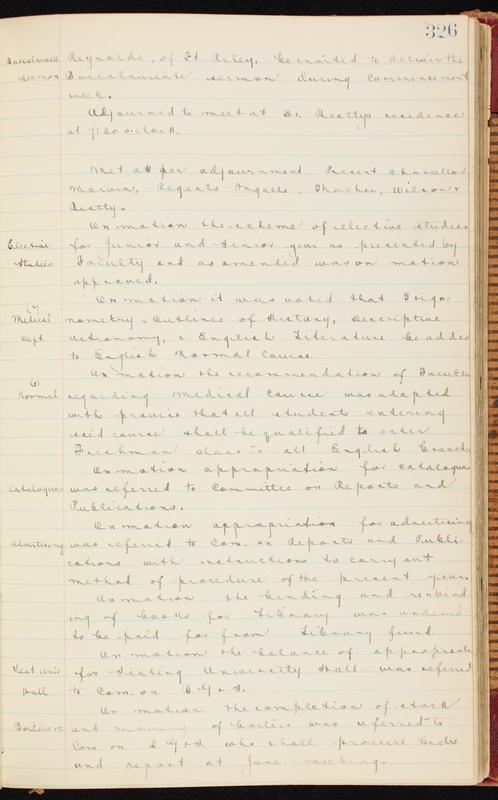 326
Baccalaureate Reynolds, of Ft. Riley, be invited to deliver the
Sermon Baccalaureate sermon during Commencement
week.
Adjourned to meet at Dr. Beattys residence
at 7:00 oclock.
Met as per adjournment. Present Chancellor
Marvin, Regents Ingalls, Thacher, Wilson &
Beatty.
On motion the scheme of elective studies
Elective for Junior and Senior year as presented by
Studies Faculty and as amended was on motion
approved.
On motion it was voted that Trigo-
Medical nometry, Outlines of History, Descriptive
Dept. Astronomy, & English Literature be added
to English Normal Course.
On motion the recommendation of Faculty
Normal regarding Medical Course was adopted
with proviso that all students entering
said course shall be qualified to enter
Freshman class in all English branches
On motion appropriation for catalogue
Catalogue was referred to Committee on Reports and
Publications.
On motion appropriation for advertising
Advertising was referred to Com. on Reports and Publi-
cations with instructions to carry out
method of procedure of the present year.
On motion the binding and re-bind
ing of books for Library was ordered
to be paid for from Library fund.
On motion the balance of appropriation
Heat Univ for heating University Hall was referred
Hall to Com. on B. G & I.
On motion the completion of stack
Boilers &c and moving of boilers was referred to
Com. on B. G & I. who shall procure bids
and report at June meeting.